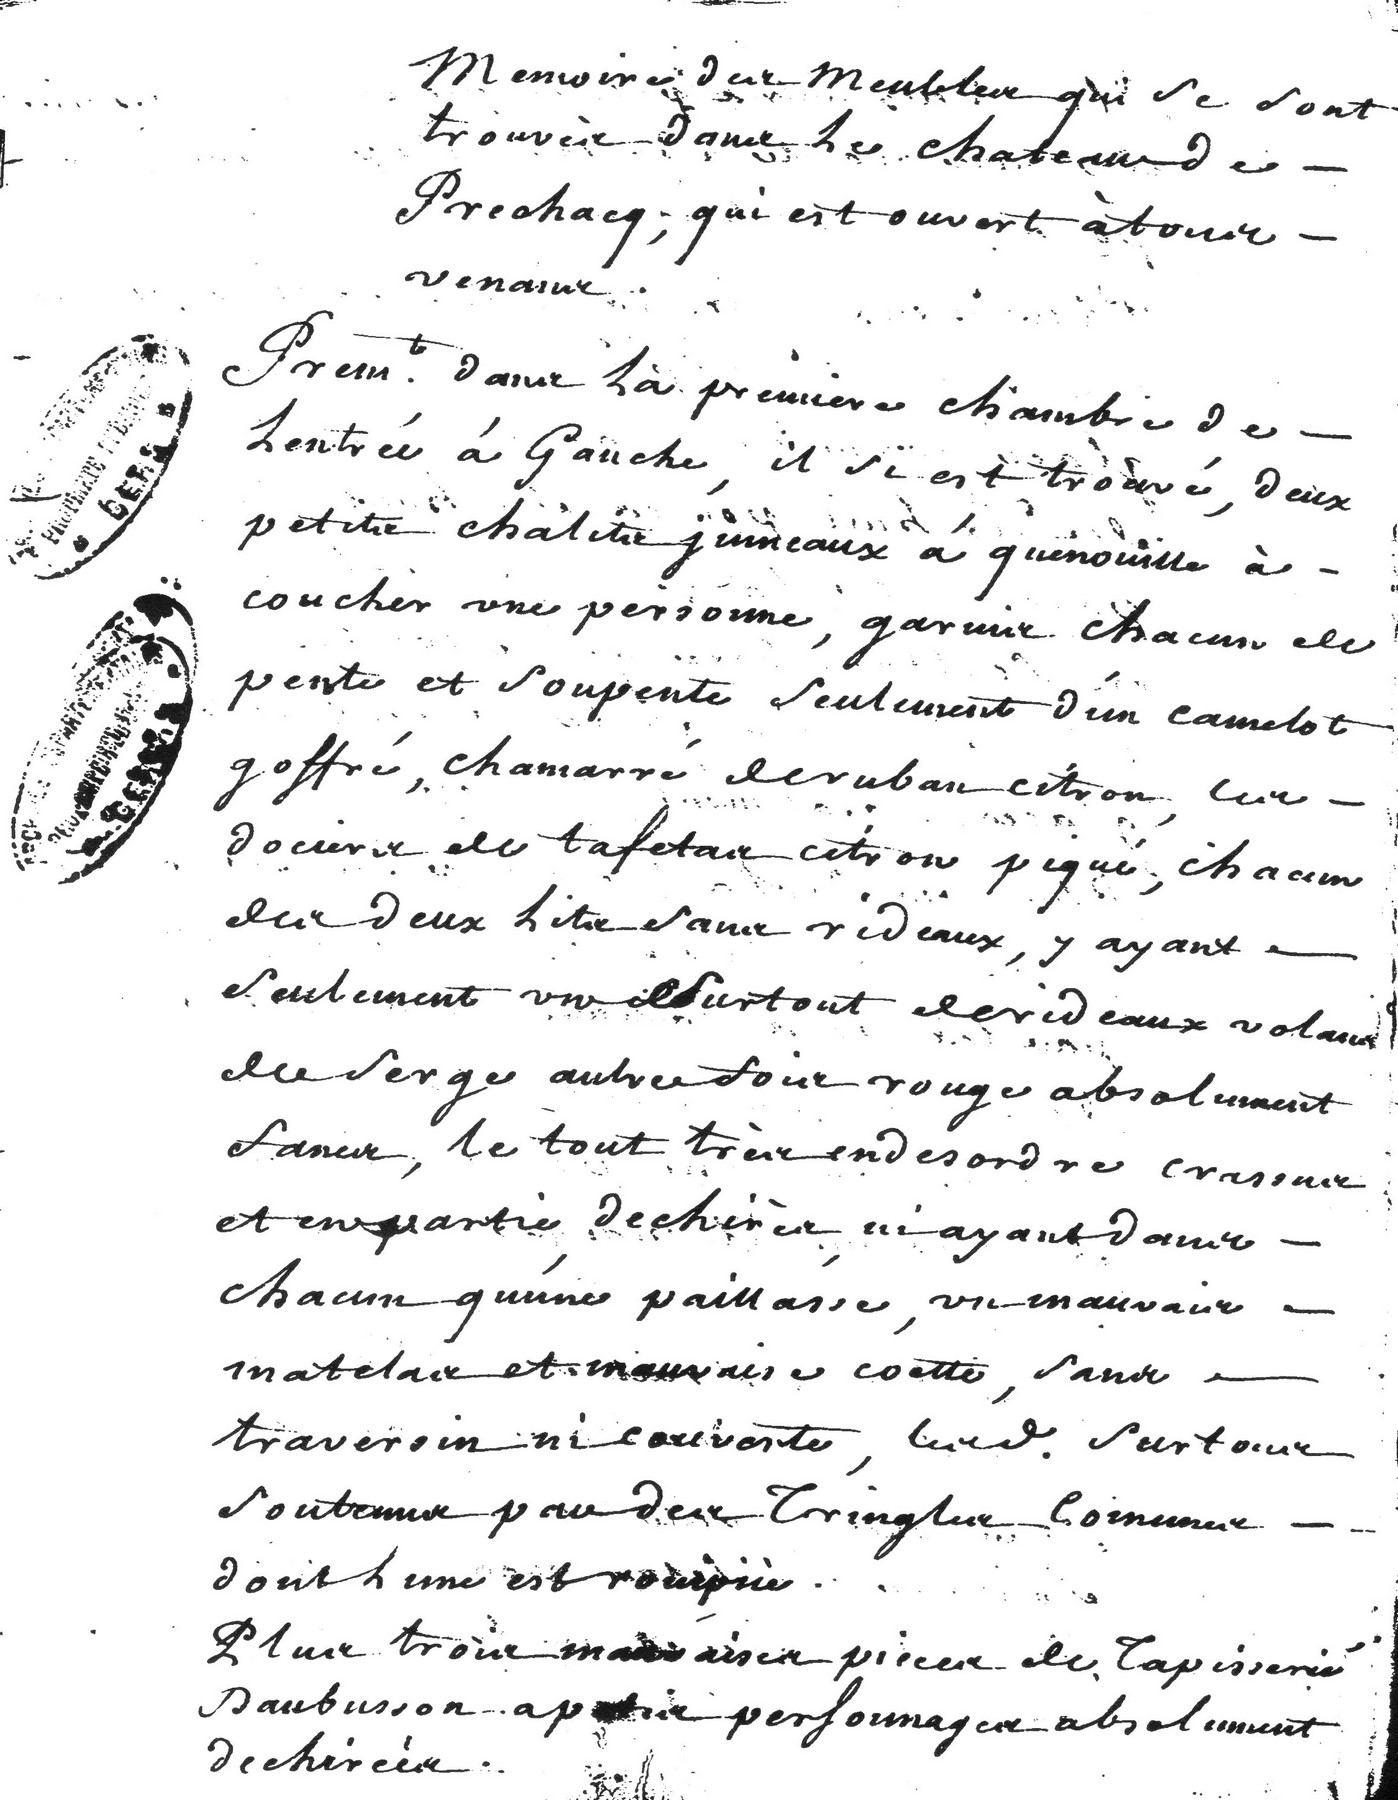 Memoire des Meubles qui se sont
trouvés dans Le chateau de –
Prechacq; qui est ouvert à tous –
venans.
Prem.t dans La premiere chambre de –
Lentrée á Gauche, il si est trouvé, deux
petits chalits jumeaux a quenouille à –
coucher une personne, garnis chacun de
pente et soupente seulement d'un camelot
goffré, chamarré de ruban citron, les –
dociers de tafetas citron piqué, chacun
des deux Lits sans rideaux, y ayant –
seulement un surtout de rideaux volans
de serge autre fois rouge absolument
fanes, le tout très en desordre crasseux
et en partie dechirés, ni ayant dans –
chacun qu'une paillasse, un mauvais –
matelas et mauvaise coette, sans –
traversin ni couverte, lesd. surtous
soutenus par des Tringles Communes –
dont L une est rompüe.
Plus trois mauvaises pieces de Tapisserie
Daubusson a petis personnages absolument
dechirées.
GERS
GERS